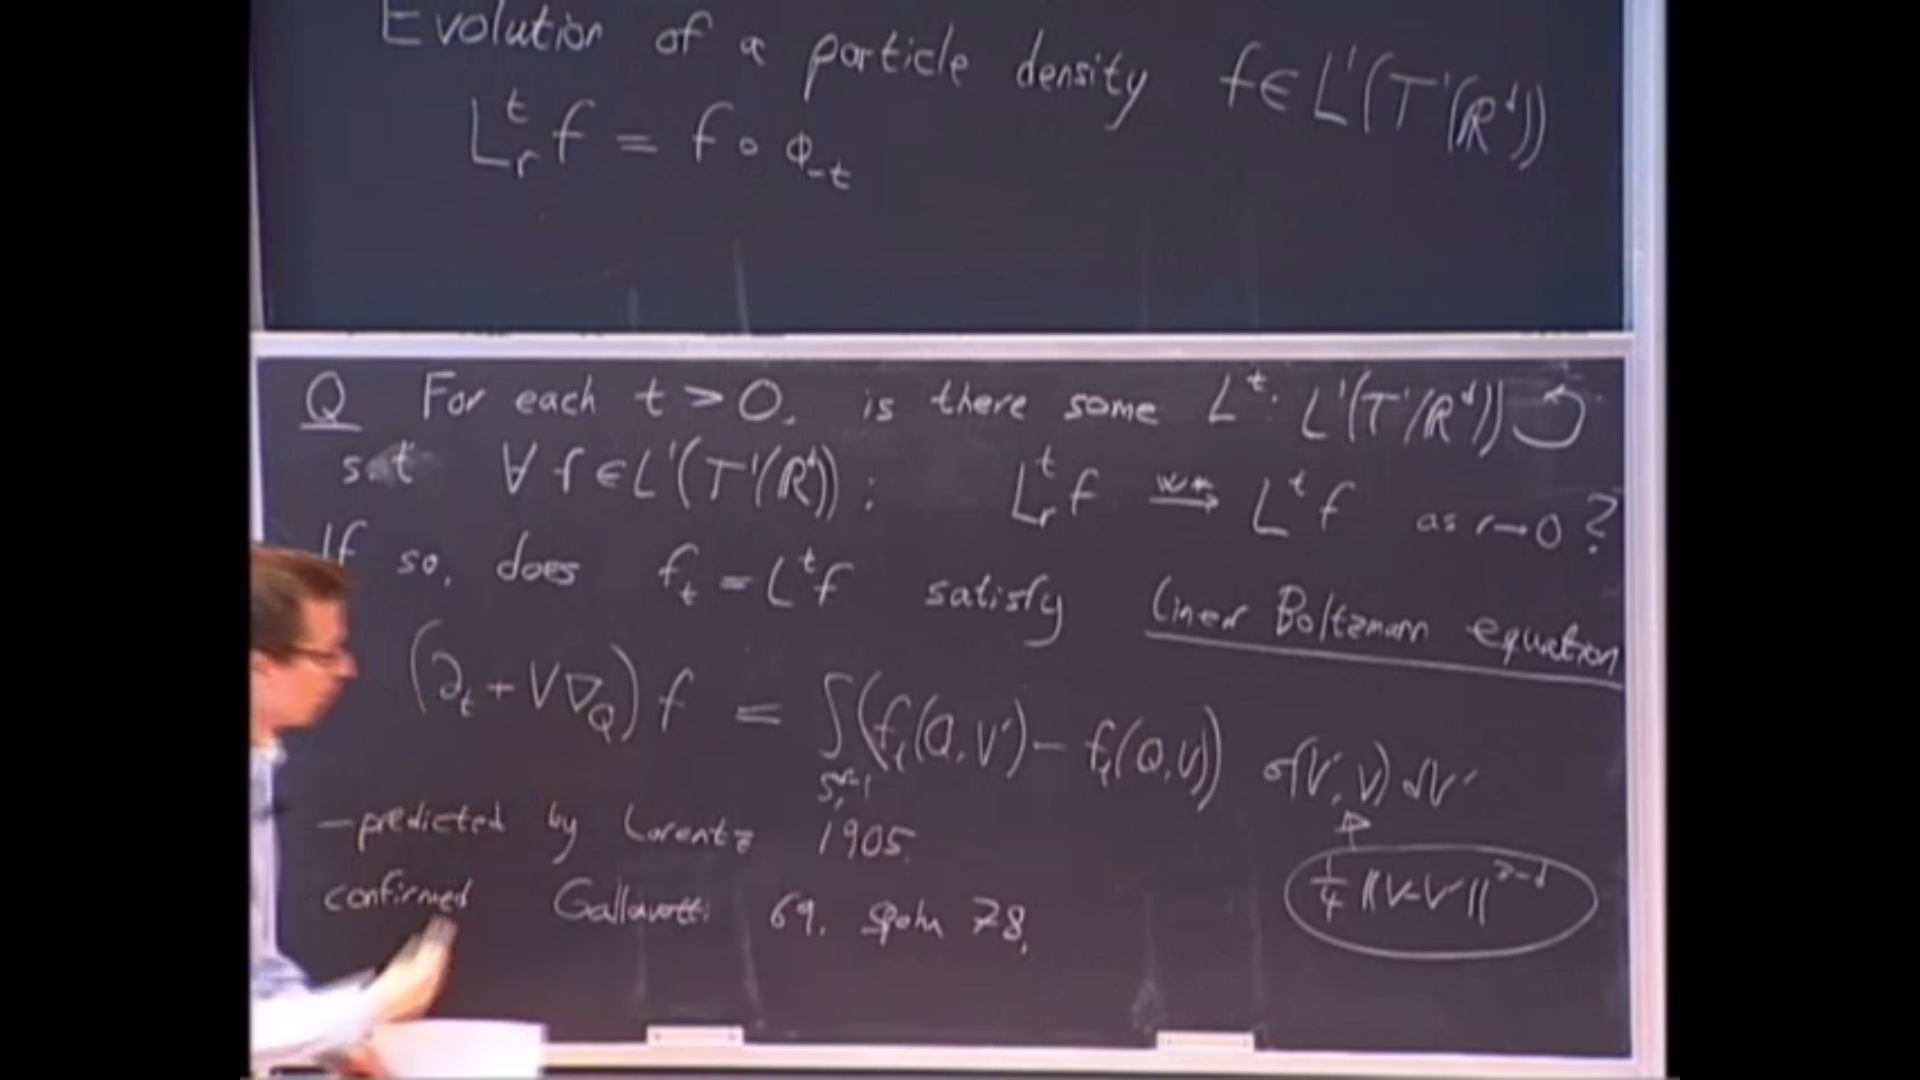 Evolution of a particle density f ∈ L¹(T¹(ℝᵈ))
Lᵣᵗ f = f ∘ ϕ₋ₜ
Q For each t > 0, is there some Lᵗ: L¹(T¹(ℝᵈ)) ↺
s.t ∀ f ∈ L¹(T¹(ℝᵈ)): Lᵣᵗ f →^{w*} Lᵗ f as r → 0?
If so, does fₜ = Lᵗ f satisfy Linear Boltzmann equation
(∂ₜ + V∇_Q) f = ∫_{S₁^{d-1}} (fₜ(Q,V') − fₜ(Q,V)) σ(V',V) dV'
— predicted by Lorentz 1905.
¼ ‖V-V'‖^{3-d}
confirmed Gallavotti 69, Spohn 78,